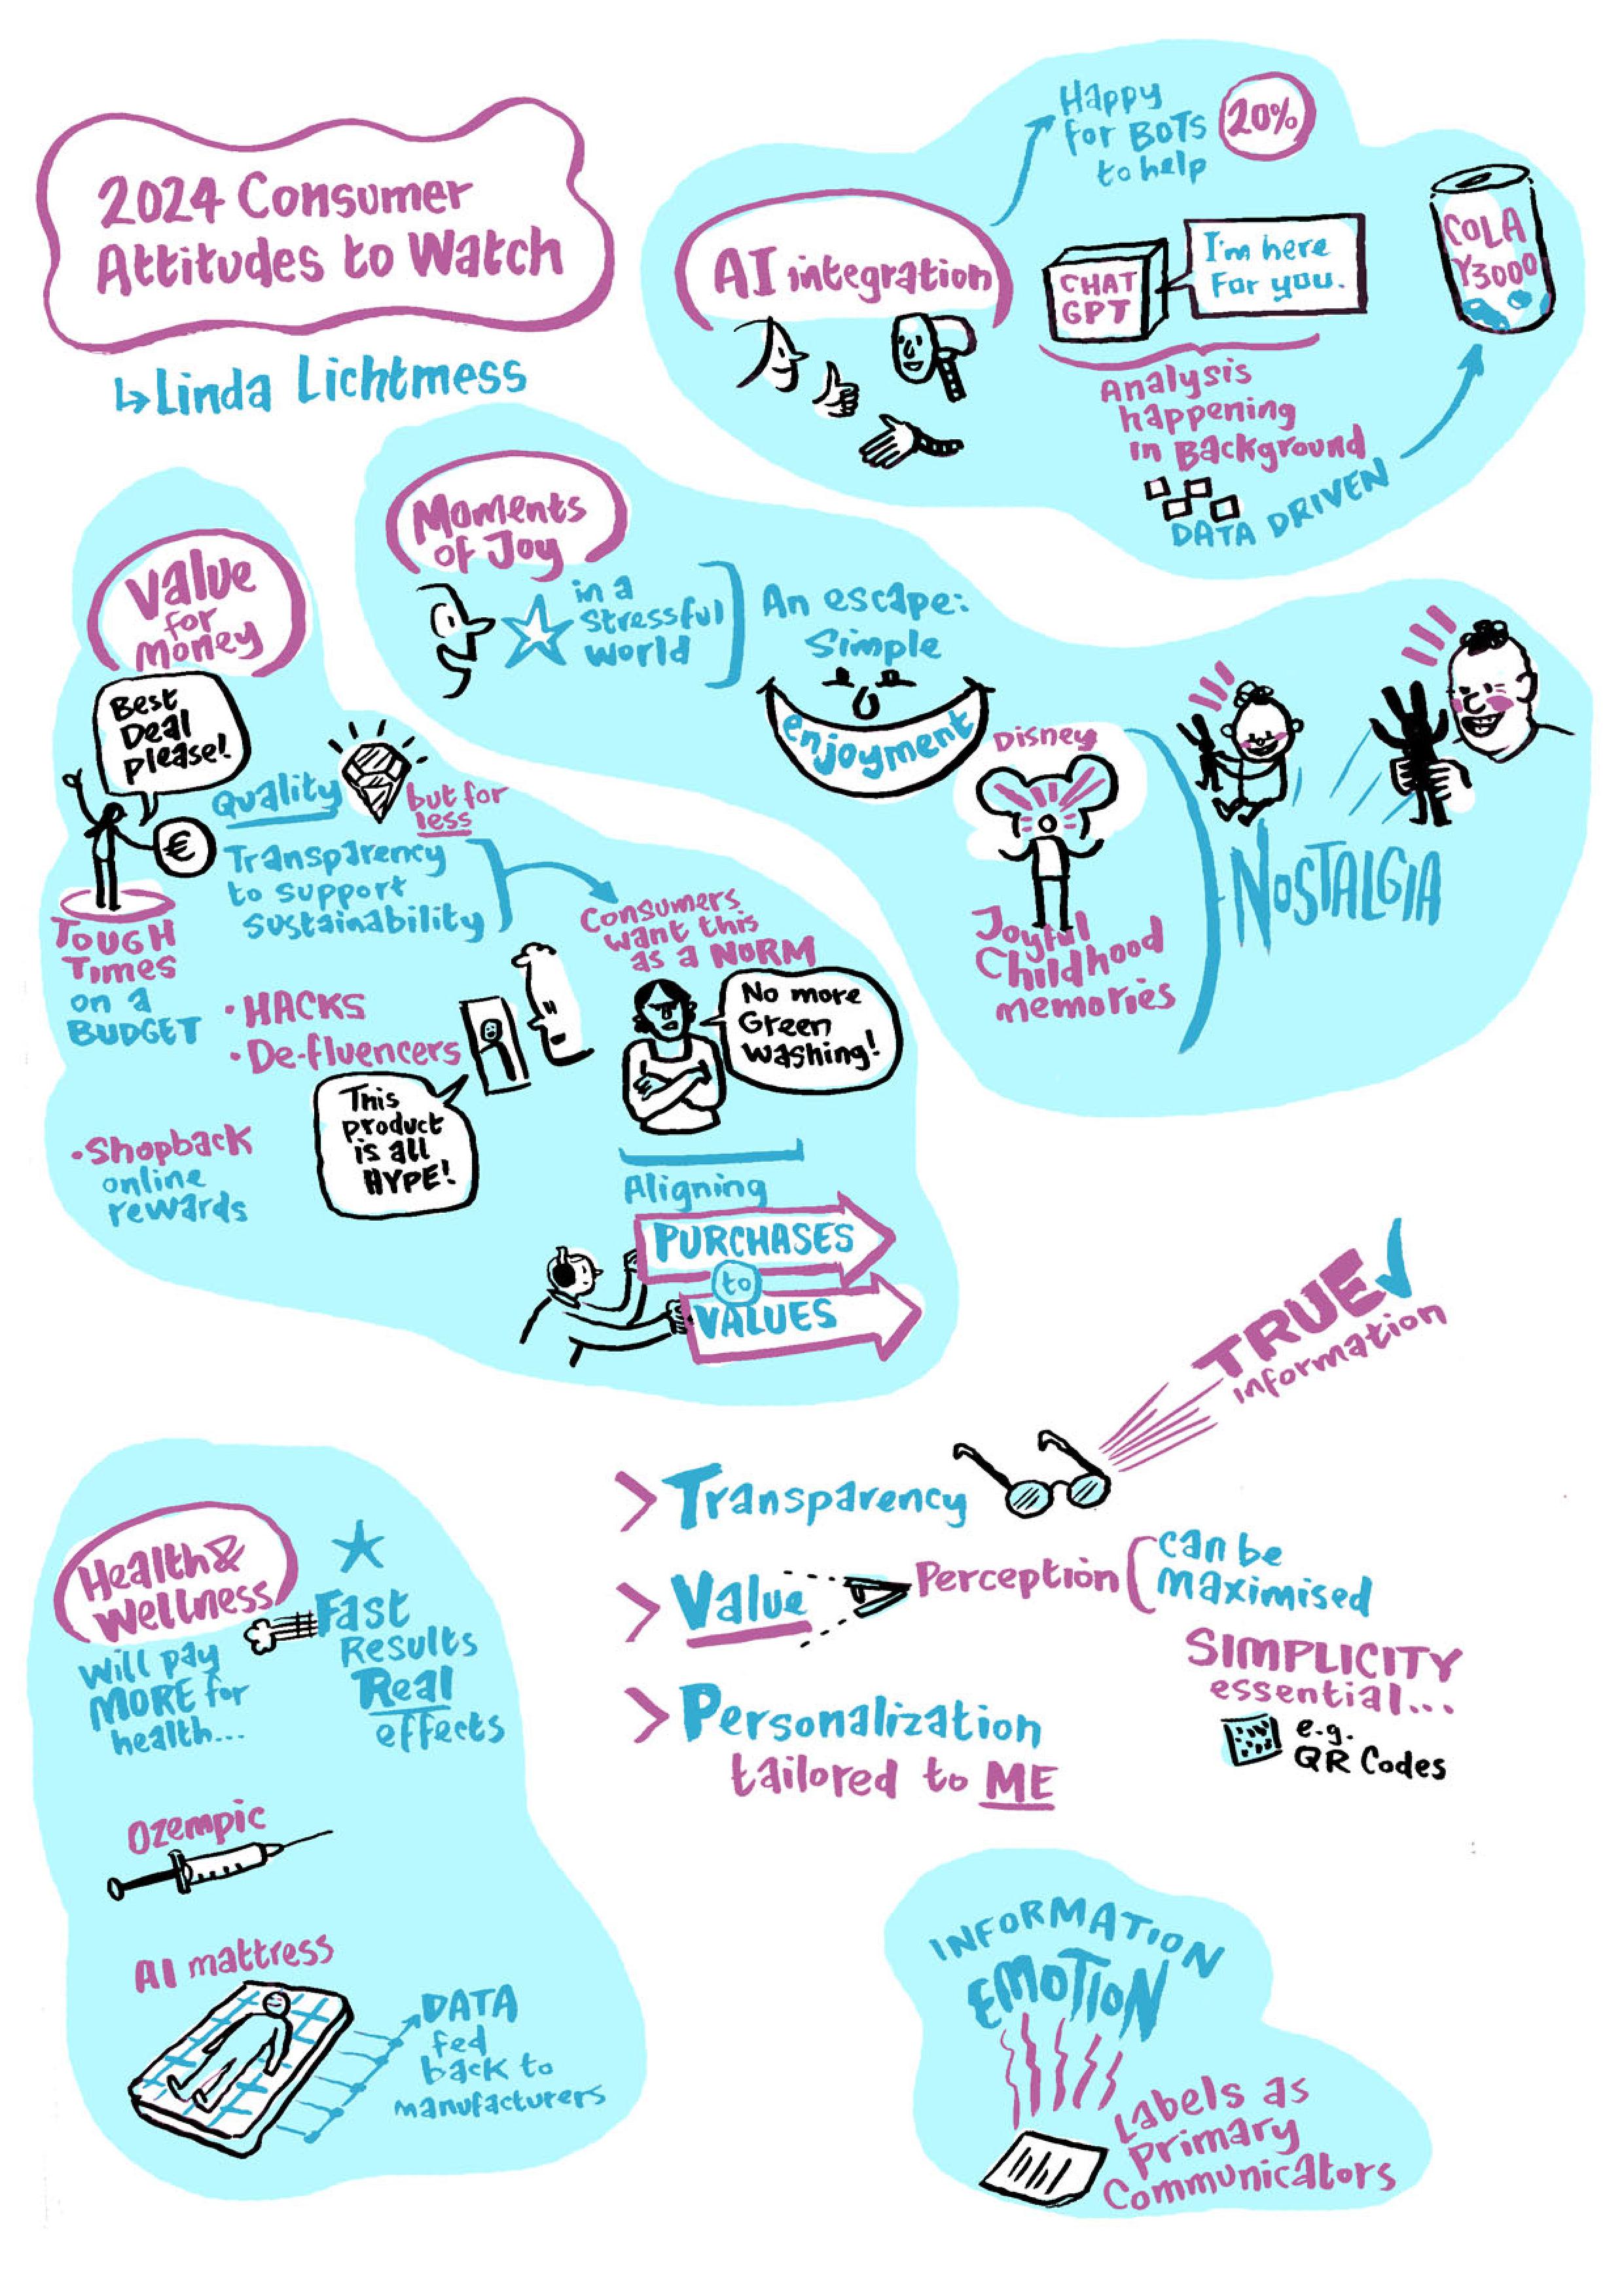 2024 Consumer
Attitudes to Watch
Linda Lichtmess
AI integration
Happy
for BOTS
to help
20%
CHAT
GPT
I'm here
For you.
COLA
Y3000
Analysis
happening
in Background
DATA DRIVEN
Moments
of Joy
in a
stressful
world
An escape:
Simple
enjoyment
Disney
Joyful
Childhood
memories
NOSTALGIA
Value
for
Money
Best
Deal
please!
€
TOUGH
Times
on a
BUDGET
Quality
but for
less
Transparency
to support
sustainability
Consumers
want this
as a NORM
No more
Green
washing!
• HACKS
• De-fluencers
This
product
is all
HYPE!
• Shopback
online
rewards
Aligning
PURCHASES
to
VALUES
Health &
Wellness
Will pay
MORE for
health...
Fast
Results
Real
effects
Ozempic
AI mattress
DATA
fed
back to
manufacturers
> Transparency
TRUE
information
> Value
Perception
can be
maximised
SIMPLICITY
essential...
e.g.
QR Codes
> Personalization
tailored to ME
INFORMATION
EMOTION
Labels as
primary
Communicators